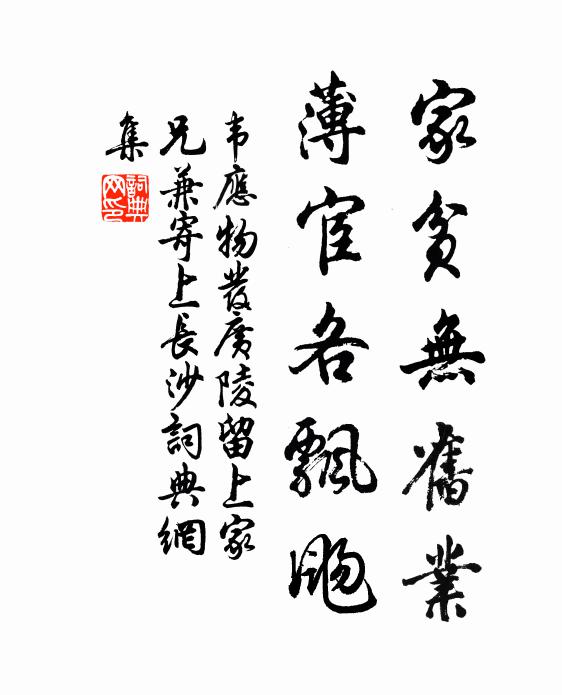 家貧無舊業
薄宦各飄颺
韦應物發廣陵留上家
兄兼寄上長沙詞典網
集
詞典
网印